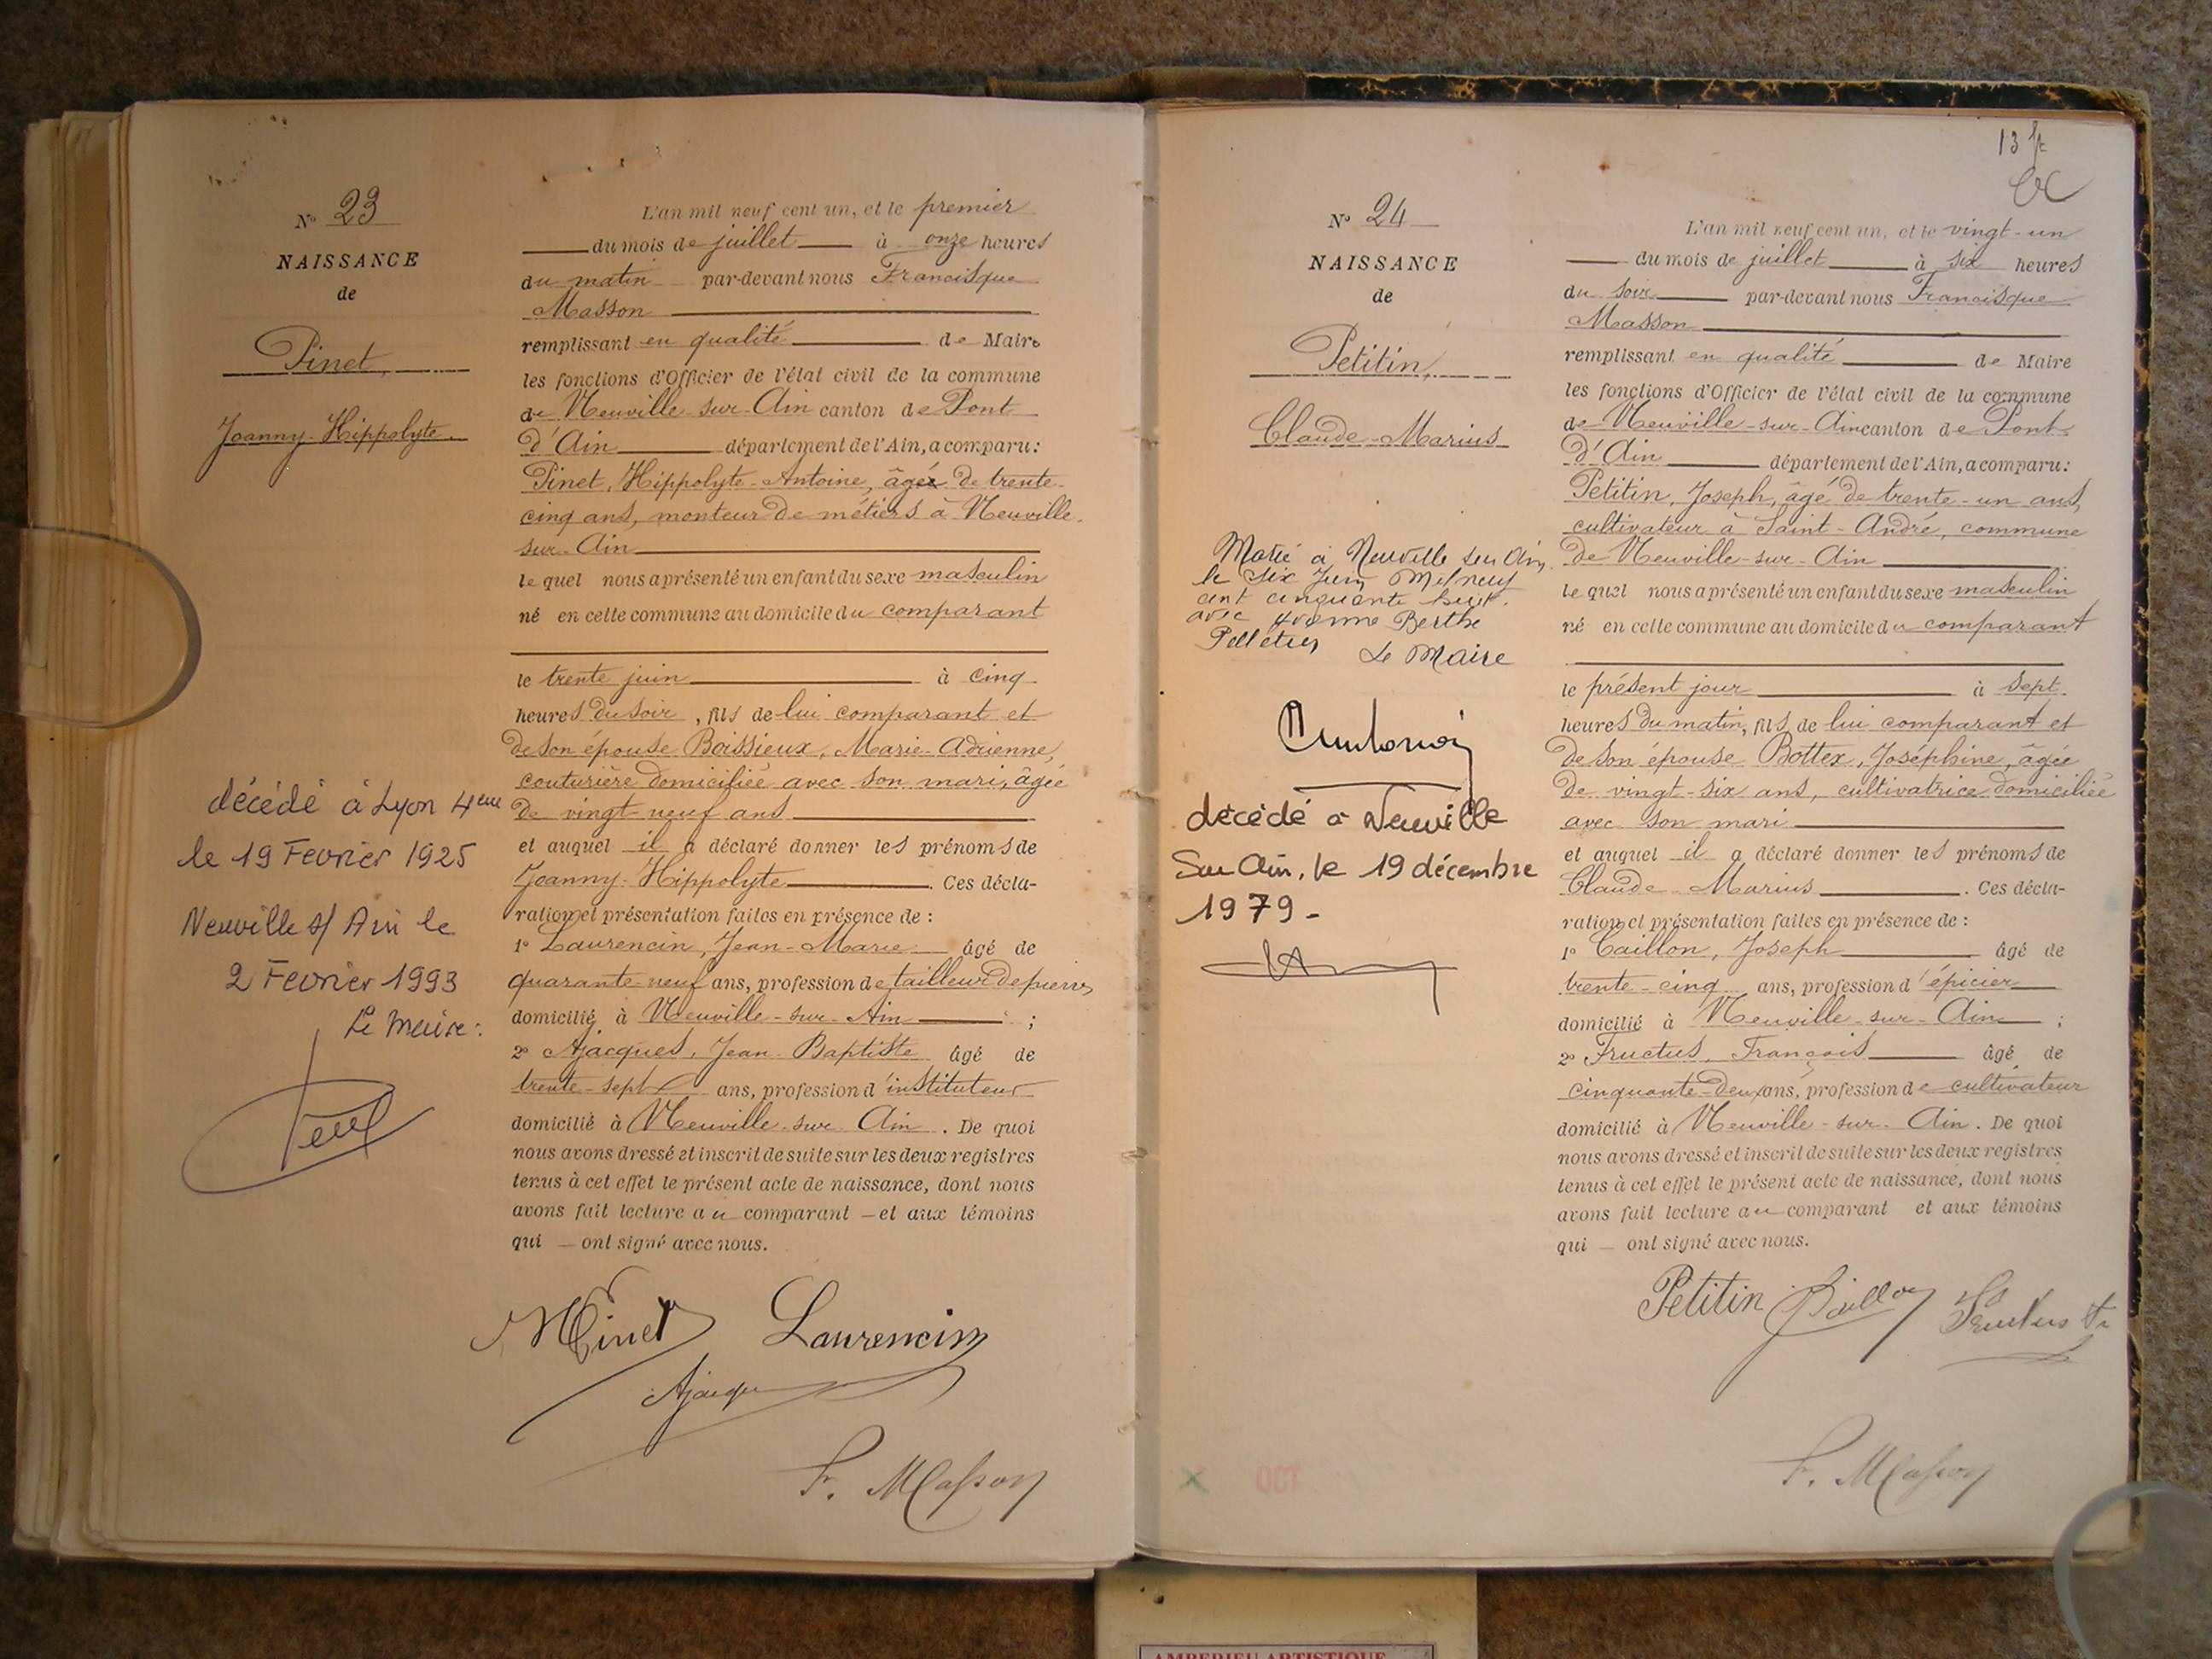 N° 23
NAISSANCE
de
Pinet,
Joanny-Hippolyte
décédé à Lyon 4eme
le 19 Fevrier 1925
Neuville s/ Ain le
2 Fevrier 1993
Le Maire:
L'an mil neuf cent un, et le premier
du mois de juillet à onze heures
du matin par-devant nous Francisque
Masson
remplissant en qualité de Maire
les fonctions d'Officier de l'état civil de la commune
de Neuville-sur-Ain canton de Pont
d'Ain département de l'Ain, a comparu:
Pinet, Hippolyte-Antoine, âgé de trente-
cinq ans, monteur de métiers à Neuville-
sur-Ain
lequel nous a présenté un enfant du sexe masculin
né en cette commune au domicile du comparant
le trente juin à cinq
heures du soir, fils de lui comparant et
de son épouse Boissieux, Marie-Adrienne,
couturière domiciliée avec son mari, âgée
de vingt neuf ans
et auquel il a déclaré donner les prénoms de
Joanny-Hippolyte. Ces décla-
ration et présentation faites en présence de:
1° Laurencin, Jean-Marie âgé de
quarante-neuf ans, profession de tailleur de pierres
domicilié à Neuville-sur-Ain ;
2° Ajacques, Jean-Baptiste âgé de
trente-sept ans, profession d'instituteur
domicilié à Neuville-sur-Ain. De quoi
nous avons dressé et inscrit de suite sur les deux registres
tenus à cet effet le présent acte de naissance, dont nous
avons fait lecture au comparant et aux témoins
qui ont signé avec nous.
Pinet Laurencin
Ajacques
F. Masson
13
N° 24
NAISSANCE
de
Petitin,
Claude-Marius
Marié à Neuville sur Ain,
le six Juin mil neuf
cent cinquante huit
avec Yvonne Berthe
Le Maire
décédé à Neuville
Sur Ain, le 19 décembre
1979-
L'an mil neuf cent un, et le vingt-un
du mois de juillet à six heures
du soir par-devant nous Francisque
Masson
remplissant en qualité de Maire
les fonctions d'Officier de l'état civil de la commune
de Neuville-sur-Ain canton de Pont
d'Ain département de l'Ain, a comparu:
Petitin, Joseph, âgé de trente-un ans,
cultivateur à Saint-André, commune
de Neuville-sur-Ain
lequel nous a présenté un enfant du sexe masculin
né en cette commune au domicile du comparant
le présent jour à sept
heures du matin, fils de lui comparant et
de son épouse Bottex, Joséphine, âgée
de vingt-six ans, cultivatrice domiciliée
avec son mari
et auquel il a déclaré donner les prénoms de
Claude-Marius. Ces décla-
ration et présentation faites en présence de:
1° Caillon, Joseph âgé de
trente-cinq ans, profession d'épicier
domicilié à Neuville-sur-Ain ;
2° Fructus, François âgé de
cinquante-deux ans, profession de cultivateur
domicilié à Neuville-sur-Ain. De quoi
nous avons dressé et inscrit de suite sur les deux registres
tenus à cet effet le présent acte de naissance, dont nous
avons fait lecture au comparant et aux témoins
qui ont signé avec nous.
Petitin
F. Masson
AMBERIEU ARTISTIQUE